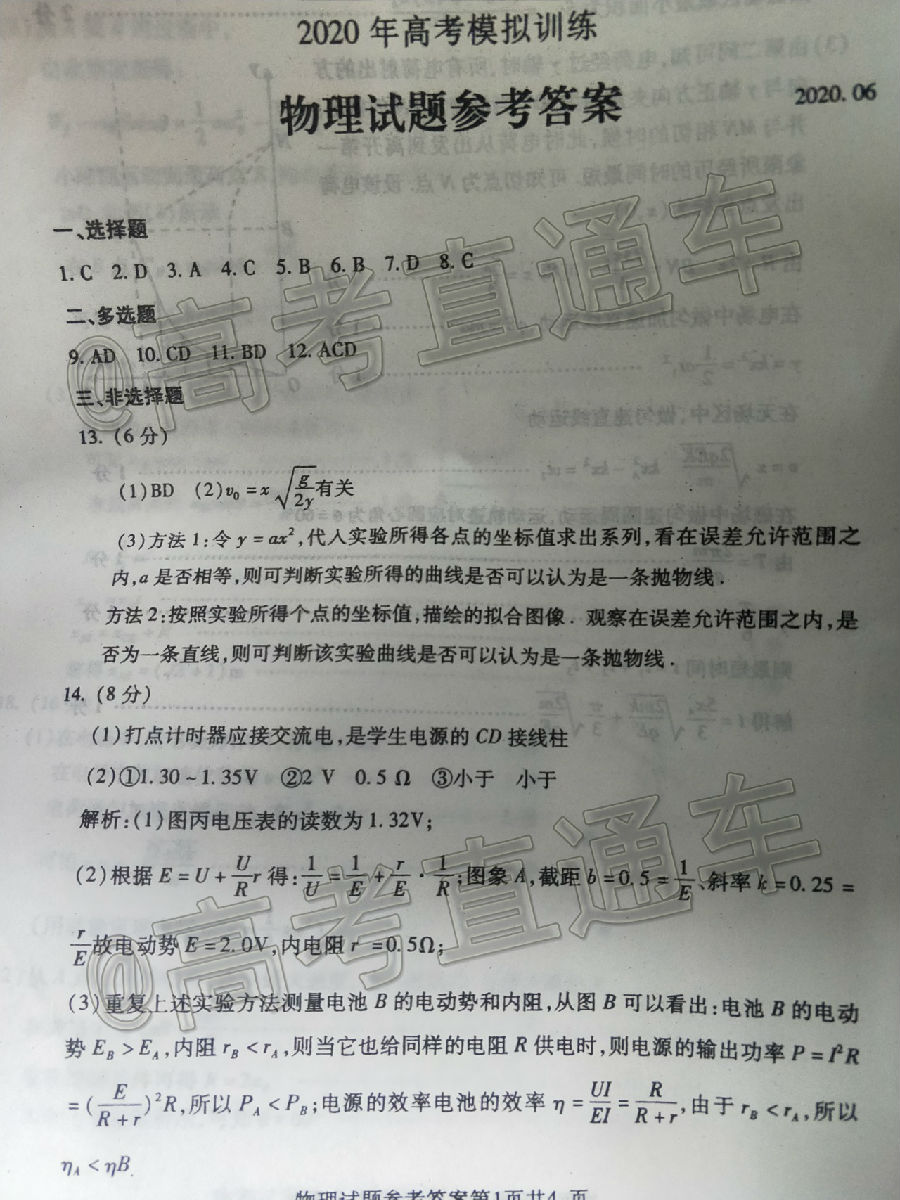 2020 年高考模拟训练
物理试题参考答案
2020.06
一、选择题
1. C 2. D 3. A 4. C 5. B 6. B 7. D 8. C
二、多选题
9. AD 10. CD 11. BD 12. ACD
三、非选择题
13. (6 分)
(1)BD (2)v₀ = x√(g/2y)有关
(3)方法 1:令 y = ax²,代人实验所得各点的坐标值求出系列,看在误差允许范围之
内,a 是否相等,则可判断实验所得的曲线是否可以认为是一条抛物线.
方法 2:按照实验所得个点的坐标值,描绘的拟合图像. 观察在误差允许范围之内,是
否为一条直线,则可判断该实验曲线是否可以认为是一条抛物线.
14. (8 分)
(1)打点计时器应接交流电,是学生电源的 CD 接线柱
(2)①1.30~1.35V ②2 V 0.5 Ω ③小于 小于
解析:(1)图丙电压表的读数为 1.32V;
(2)根据 E = U + U/R r 得: 1/U = 1/E + r/E · 1/R;图象 A,截距 b = 0.5 = 1/E、斜率 k = 0.25 =
r/E故电动势 E = 2.0V,内电阻 r = 0.5Ω;
(3)重复上述实验方法测量电池 B 的电动势和内阻,从图 B 可以看出:电池 B 的电动
势 E_B > E_A,内阻 r_B < r_A,则当它也给同样的电阻 R 供电时,则电源的输出功率 P = I²R
= (E/(R + r))²R,所以 P_A < P_B;电源的效率电池的效率 η = UI/EI = R/(R + r),由于 r_B < r_A,所以
η_A < ηB.
物理试题参考答案第1页共4 页
@高考直通车
@高考直通车